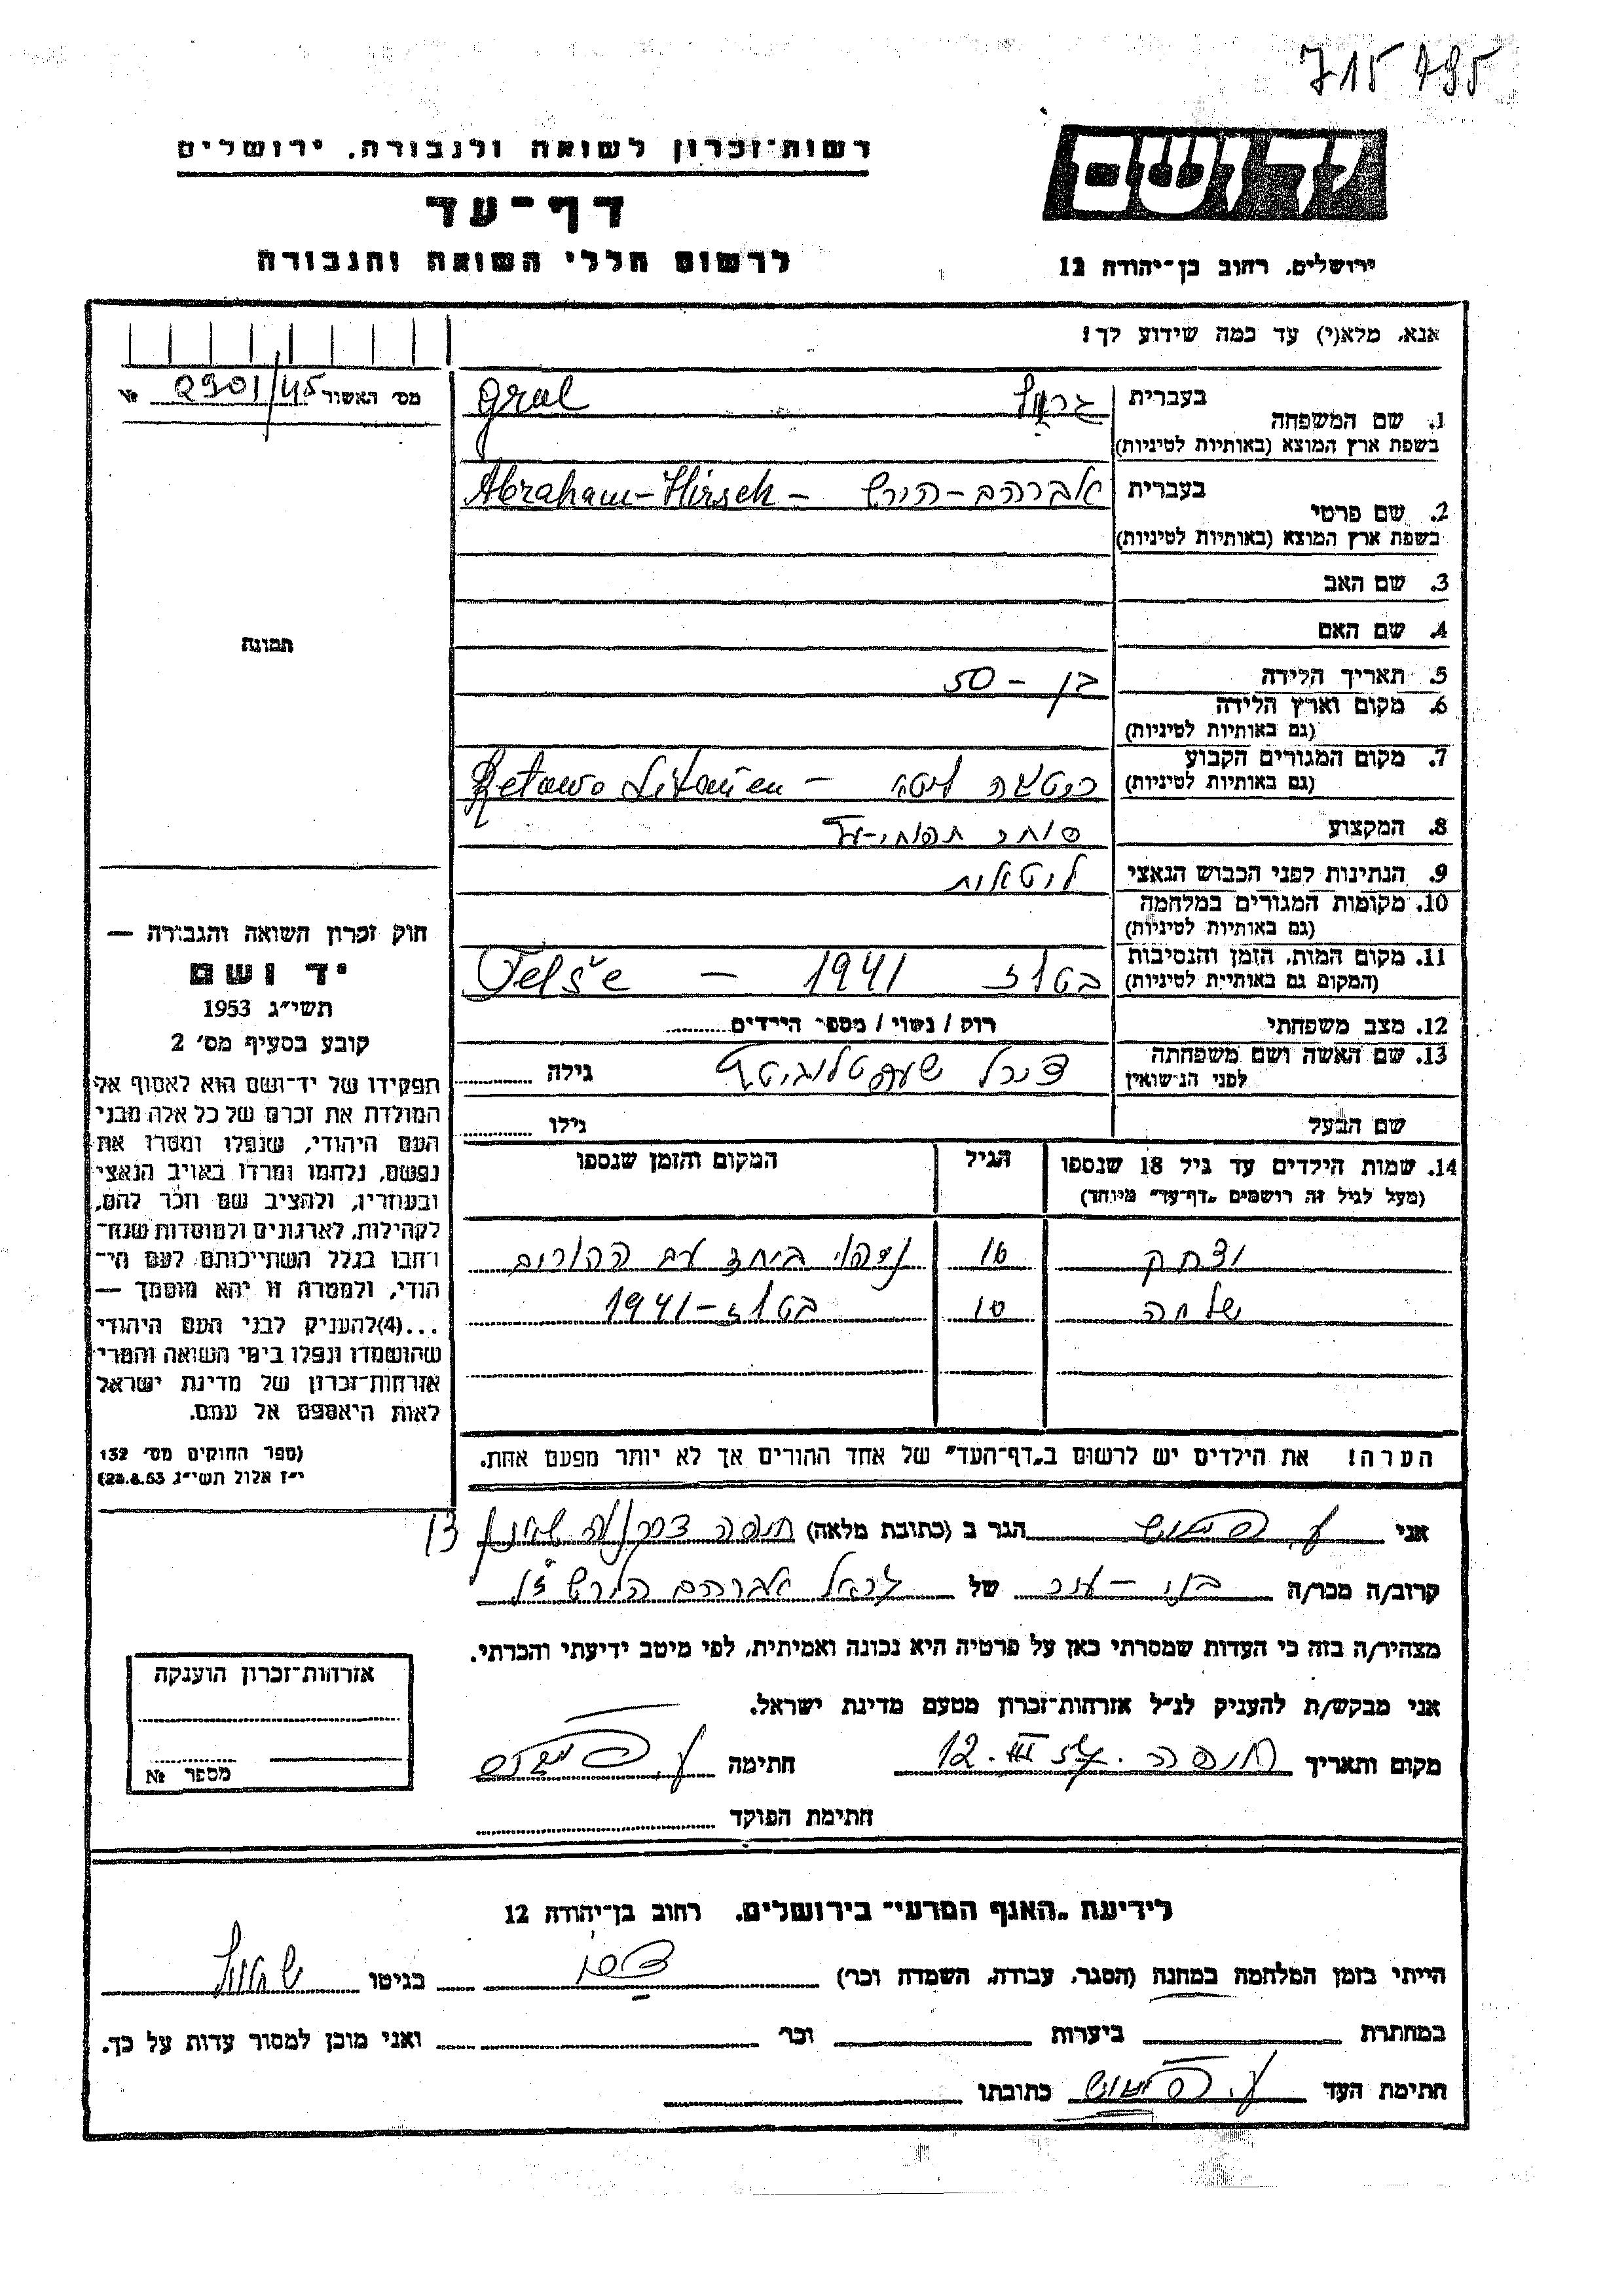 715 795
רשות־זכרון לשואה ולגבורה, ירושלים
דף־עד
לרשום חללי השואה והגבורה
יד ושם
ירושלים, רחוב בן־יהודה 12
אנא, מלא(י) עד כמה שידוע לך!
מס׳ האשור 2901/45 №
תמונה
חוק זכרון השואה והגבורה —
יד ושם
תשי״ג 1953
קובע בסעיף מס׳ 2
תפקידו של יד־ושם הוא לאסוף אל
המולדת את זכרם של כל אלה מבני
העם היהודי, שנפלו ומסרו את
נפשם, נלחמו ומרדו באויב הנאצי
ובעוזריו, ולהציב שם וזכר להם,
לקהילות, לארגונים ולמוסדות שנח־
רחבו בגלל השתייכותם לעם הי־
הודי, ולמטרה זו יהא מוסמך —
...(4)להעניק לבני העם היהודי
שהושמדו ונפלו בימי השואה והמרי
אזרחות־זכרון של מדינת ישראל
לאות היאספם אל עמם.
(ספר החוקים מס׳ 132
י״ז אלול תשי״ג 28.8.53)
1. שם המשפחה
בעברית גראל Gral
בשפת ארץ המוצא (באותיות לטיניות)
2. שם פרטי
בעברית אברהם-הירש - Abraham-Hirsch
בשפת ארץ המוצא (באותיות לטיניות)
3. שם האב
4. שם האם
5. תאריך הלידה בן - 50
6. מקום וארץ הלידה
(גם באותיות לטיניות)
7. מקום המגורים הקבוע ריטאוה ליטא - Retawo Litauen
(גם באותיות לטיניות)
8. המקצוע סוחר תפוחי-עץ
9. הנתינות לפני הכבוש הנאצי ליטאית
10. מקומות המגורים במלחמה
(גם באותיות לטיניות)
11. מקום המות, הזמן והנסיבות בטלז 1941 - Telše
(המקום גם באותיות לטיניות)
12. מצב משפחתי רווק / נשוי / מספר הילדים
13. שם האשה ושם משפחתה
לפני הנישואין גילה
שם הבעל גילו
14. שמות הילדים עד גיל 18 שנספו הגיל המקום והזמן שנספו
(מעל לגיל זה רושמים „דף־עד״ מיוחד)
יצחק 16 נספו ביחד עם ההורים
שלמה 10 בטלז - 1941
הערה! את הילדים יש לרשום ב„דף־העד״ של אחד ההורים אך לא יותר מפעם אחת.
אני הגר ב (כתובת מלאה) חיפה 13
קרוב/ה מכר/ה בני-עיר של גראל אברהם הירש ז"ל
מצהיר/ה בזה כי העדות שמסרתי כאן על פרטיה היא נכונה ואמיתית, לפי מיטב ידיעתי והכרתי.
אני מבקש/ת להעניק לנ״ל אזרחות־זכרון מטעם מדינת ישראל.
מקום ותאריך חיפה 12. III חתימה
חתימת הפוקד
אזרחות־זכרון הוענקה
מספר №
לידיעת „האגף המדעי״ בירושלים, רחוב בן־יהודה 12
הייתי בזמן המלחמה במחנה (הסגר, עבודה, השמדה וכו׳) בגיטו
במחתרת ביערות וכו׳ ואני מוכן למסור עדות על כך.
חתימת העד כתובתו